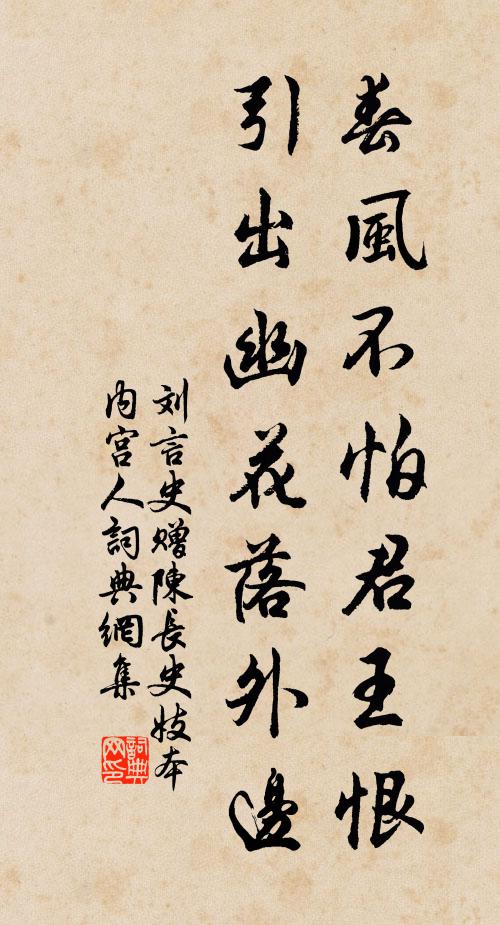 春風不怕君王恨
引出幽花落外邊
刘言史贈陳長史妓本
内宮人詞典網集
詞典
网印